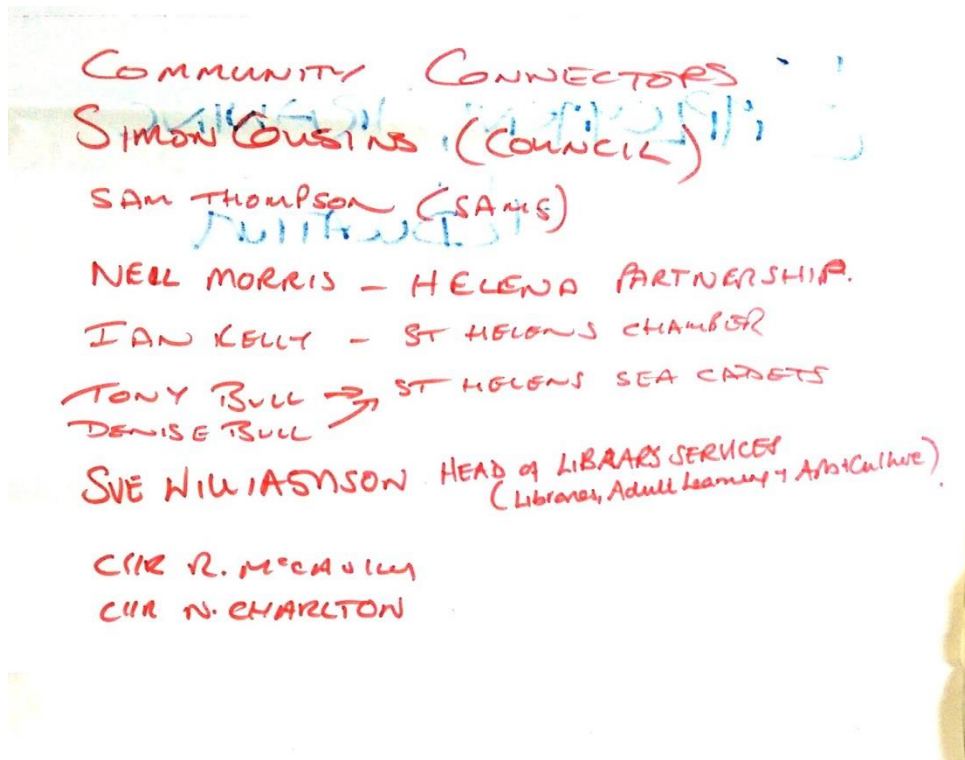 COMMUNITY CONNECTORS
SIMON COUSINS (COUNCIL)
SAM THOMPSON (SAMS)
NEIL MORRIS – HELENA PARTNERSHIP.
IAN KELLY – ST HELENS CHAMBER
TONY BULL → ST HELENS SEA CADETS
DENISE BULL
SUE WILLIAMSON HEAD of LIBRARY SERVICES
(Libraries, Adult Learning + Arts+Culture)
CllR R. McCAULEY
CllR N. CHARLTON